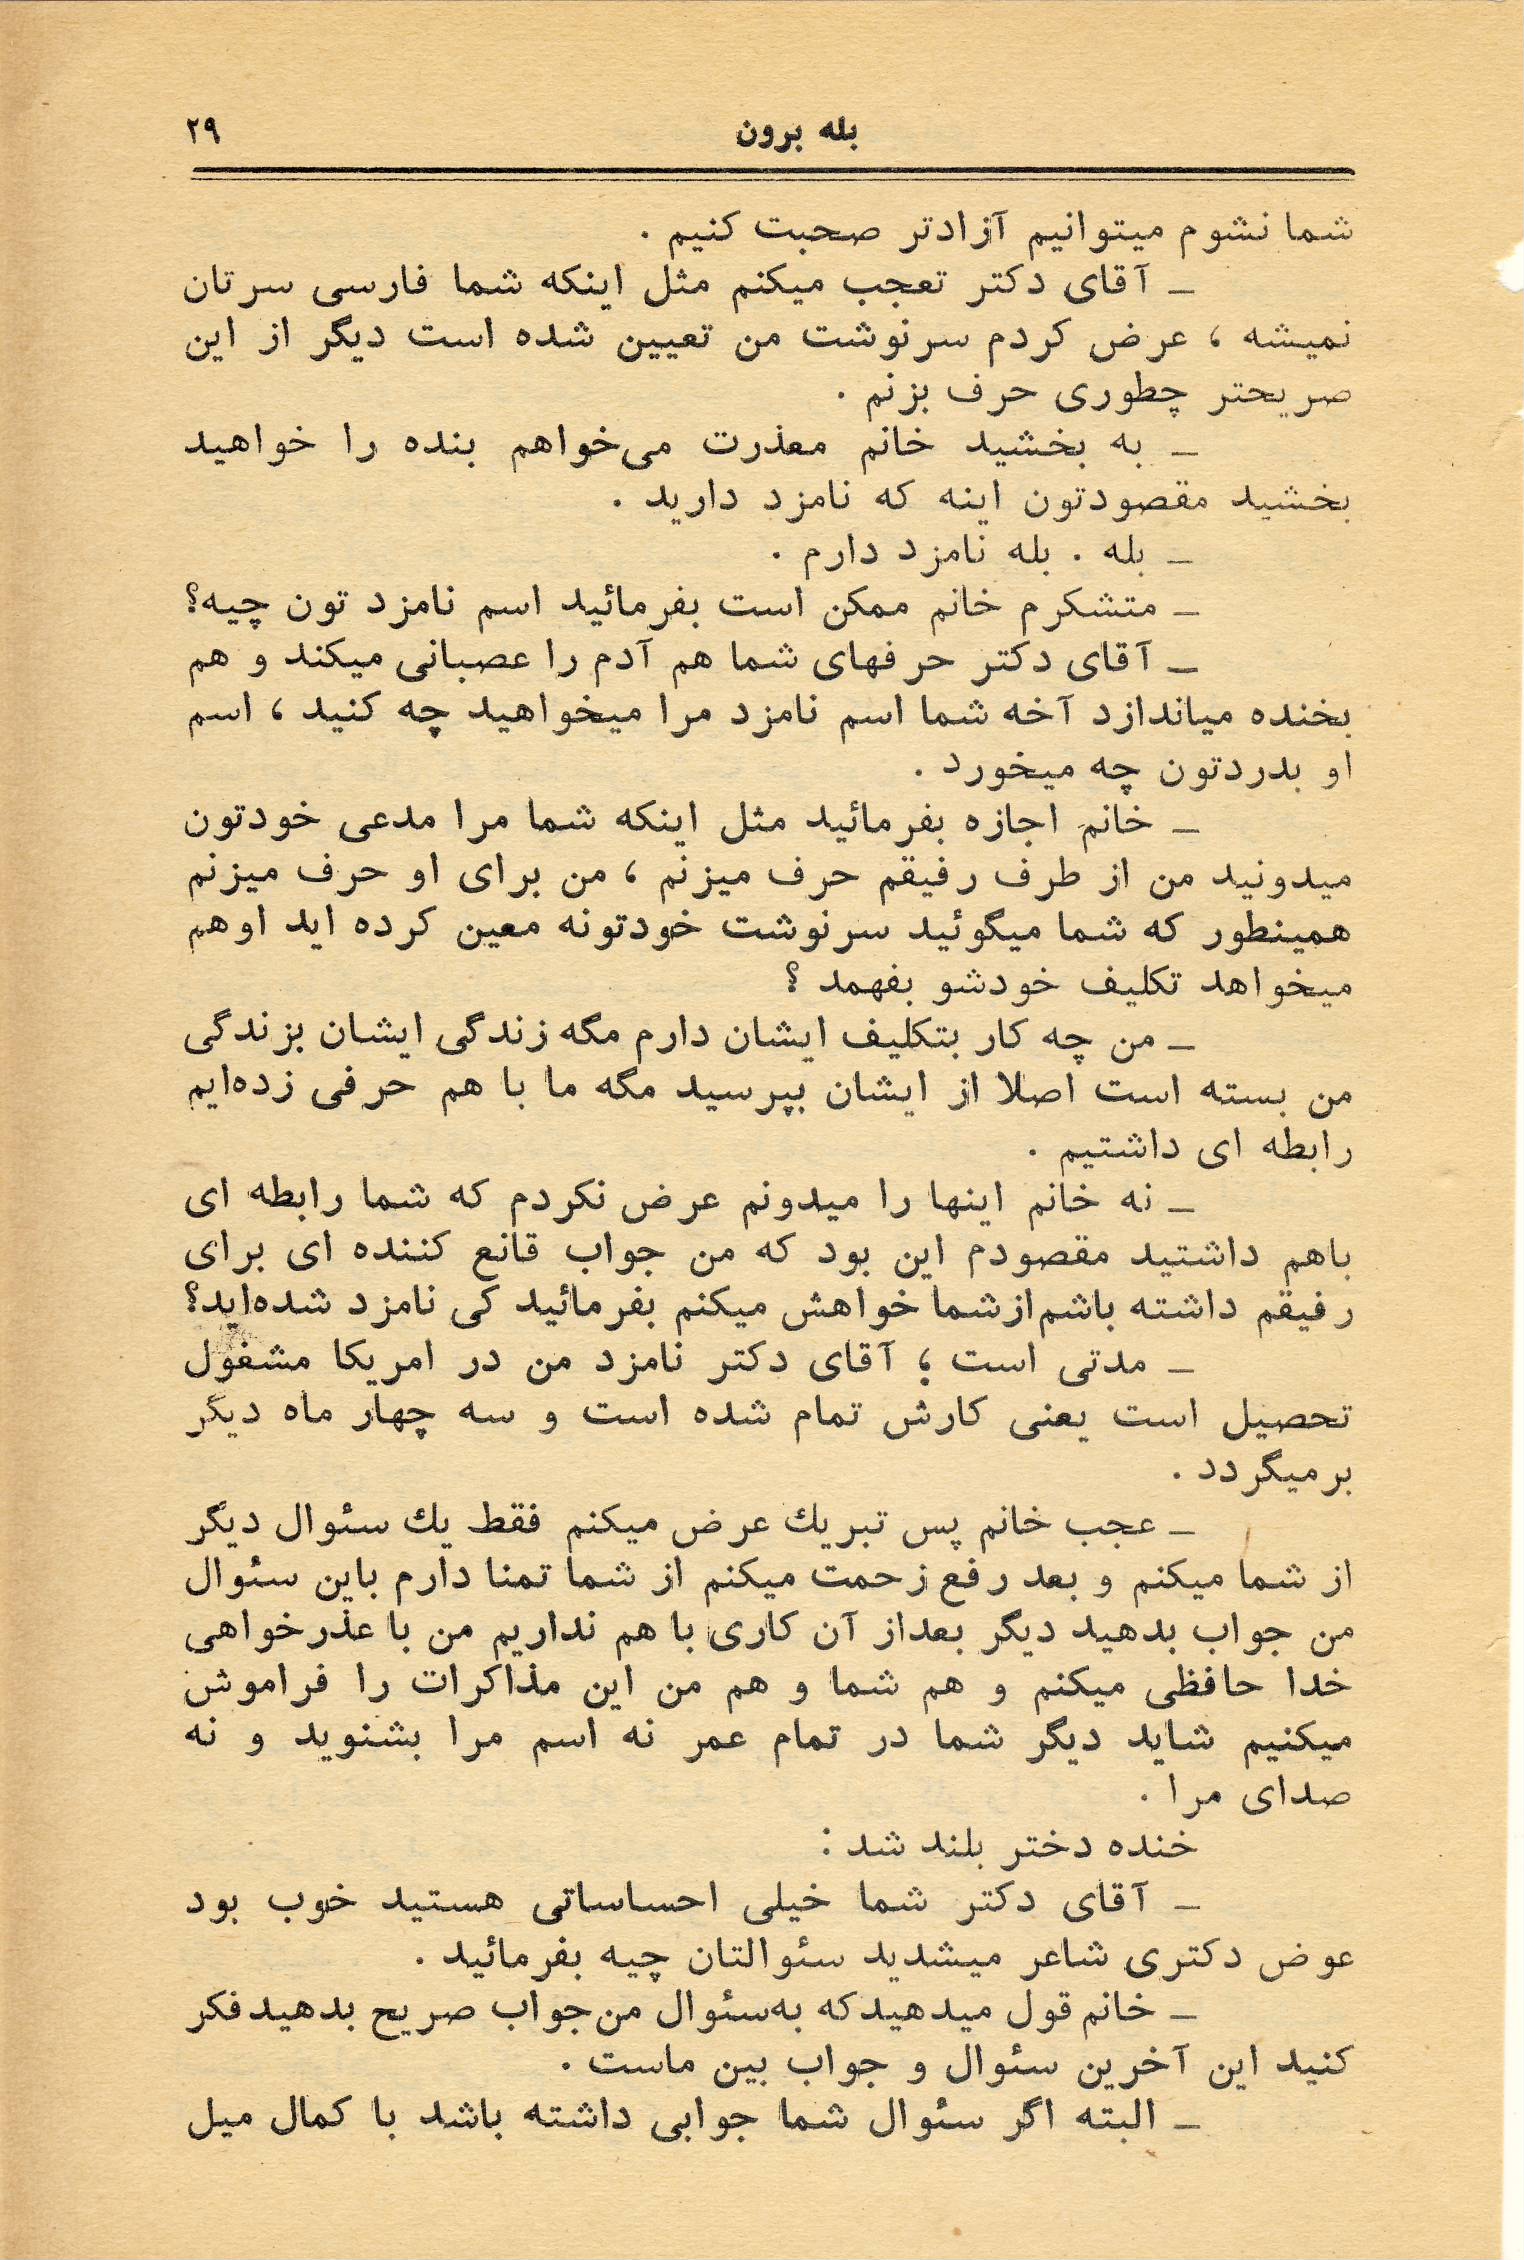 بله برون
۲۹
شما نشوم میتوانیم آزادتر صحبت کنیم .
_ آقای دکتر تعجب میکنم مثل اینکه شما فارسی سرتان
نمیشه ، عرض کردم سرنوشت من تعیین شده است دیگر از این
صریحتر چطوری حرف بزنم .
_ به بخشید خانم معذرت می‌خواهم بنده را خواهید
بخشید مقصودتون اینه که نامزد دارید .
_ بله . بله نامزد دارم .
_ متشکرم خانم ممکن است بفرمائید اسم نامزد تون چیه؟
_ آقای دکتر حرفهای شما هم آدم را عصبانی میکند و هم
بخنده میاندازد آخه شما اسم نامزد مرا میخواهید چه کنید ، اسم
او بدردتون چه میخورد .
_ خانم اجازه بفرمائید مثل اینکه شما مرا مدعی خودتون
میدونید من از طرف رفیقم حرف میزنم ، من برای او حرف میزنم
همینطور که شما میگوئید سرنوشت خودتونه معین کرده اید اوهم
میخواهد تکلیف خودشو بفهمد ؟
_ من چه کار بتکلیف ایشان دارم مگه زندگی ایشان بزندگی
من بسته است اصلا از ایشان بپرسید مگه ما با هم حرفی زده‌ایم
رابطه ای داشتیم .
_ نه خانم اینها را میدونم عرض نکردم که شما رابطه ای
باهم داشتید مقصودم این بود که من جواب قانع کننده ای برای
رفیقم داشته باشم‌ازشما خواهش میکنم بفرمائید کی نامزد شده‌اید؟
_ مدتی است ؛ آقای دکتر نامزد من در امریکا مشغول
تحصیل است یعنی کارش تمام شده است و سه چهار ماه دیگر
برمیگردد .
_ عجب خانم پس تبریك عرض میکنم فقط یك سئوال دیگر
از شما میکنم و بعد رفع زحمت میکنم از شما تمنا دارم باین سئوال
من جواب بدهید دیگر بعداز آن کاری با هم نداریم من با عذرخواهی
خدا حافظی میکنم و هم شما و هم من این مذاکرات را فراموش
میکنیم شاید دیگر شما در تمام عمر نه اسم مرا بشنوید و نه
صدای مرا .
خنده دختر بلند شد :
_ آقای دکتر شما خیلی احساساتی هستید خوب بود
عوض دکتری شاعر میشدید سئوالتان چیه بفرمائید .
_ خانم قول میدهیدکه به‌سئوال من‌جواب صریح بدهیدفکر
کنید این آخرین سئوال و جواب بین ماست .
_ البته اگر سئوال شما جوابی داشته باشد با کمال میل